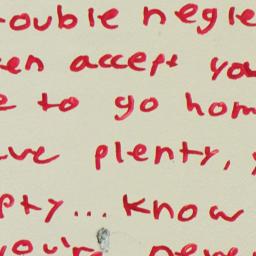 ouble negle
en accept you
e to go hom
ve plenty,
pty... know
you're neve